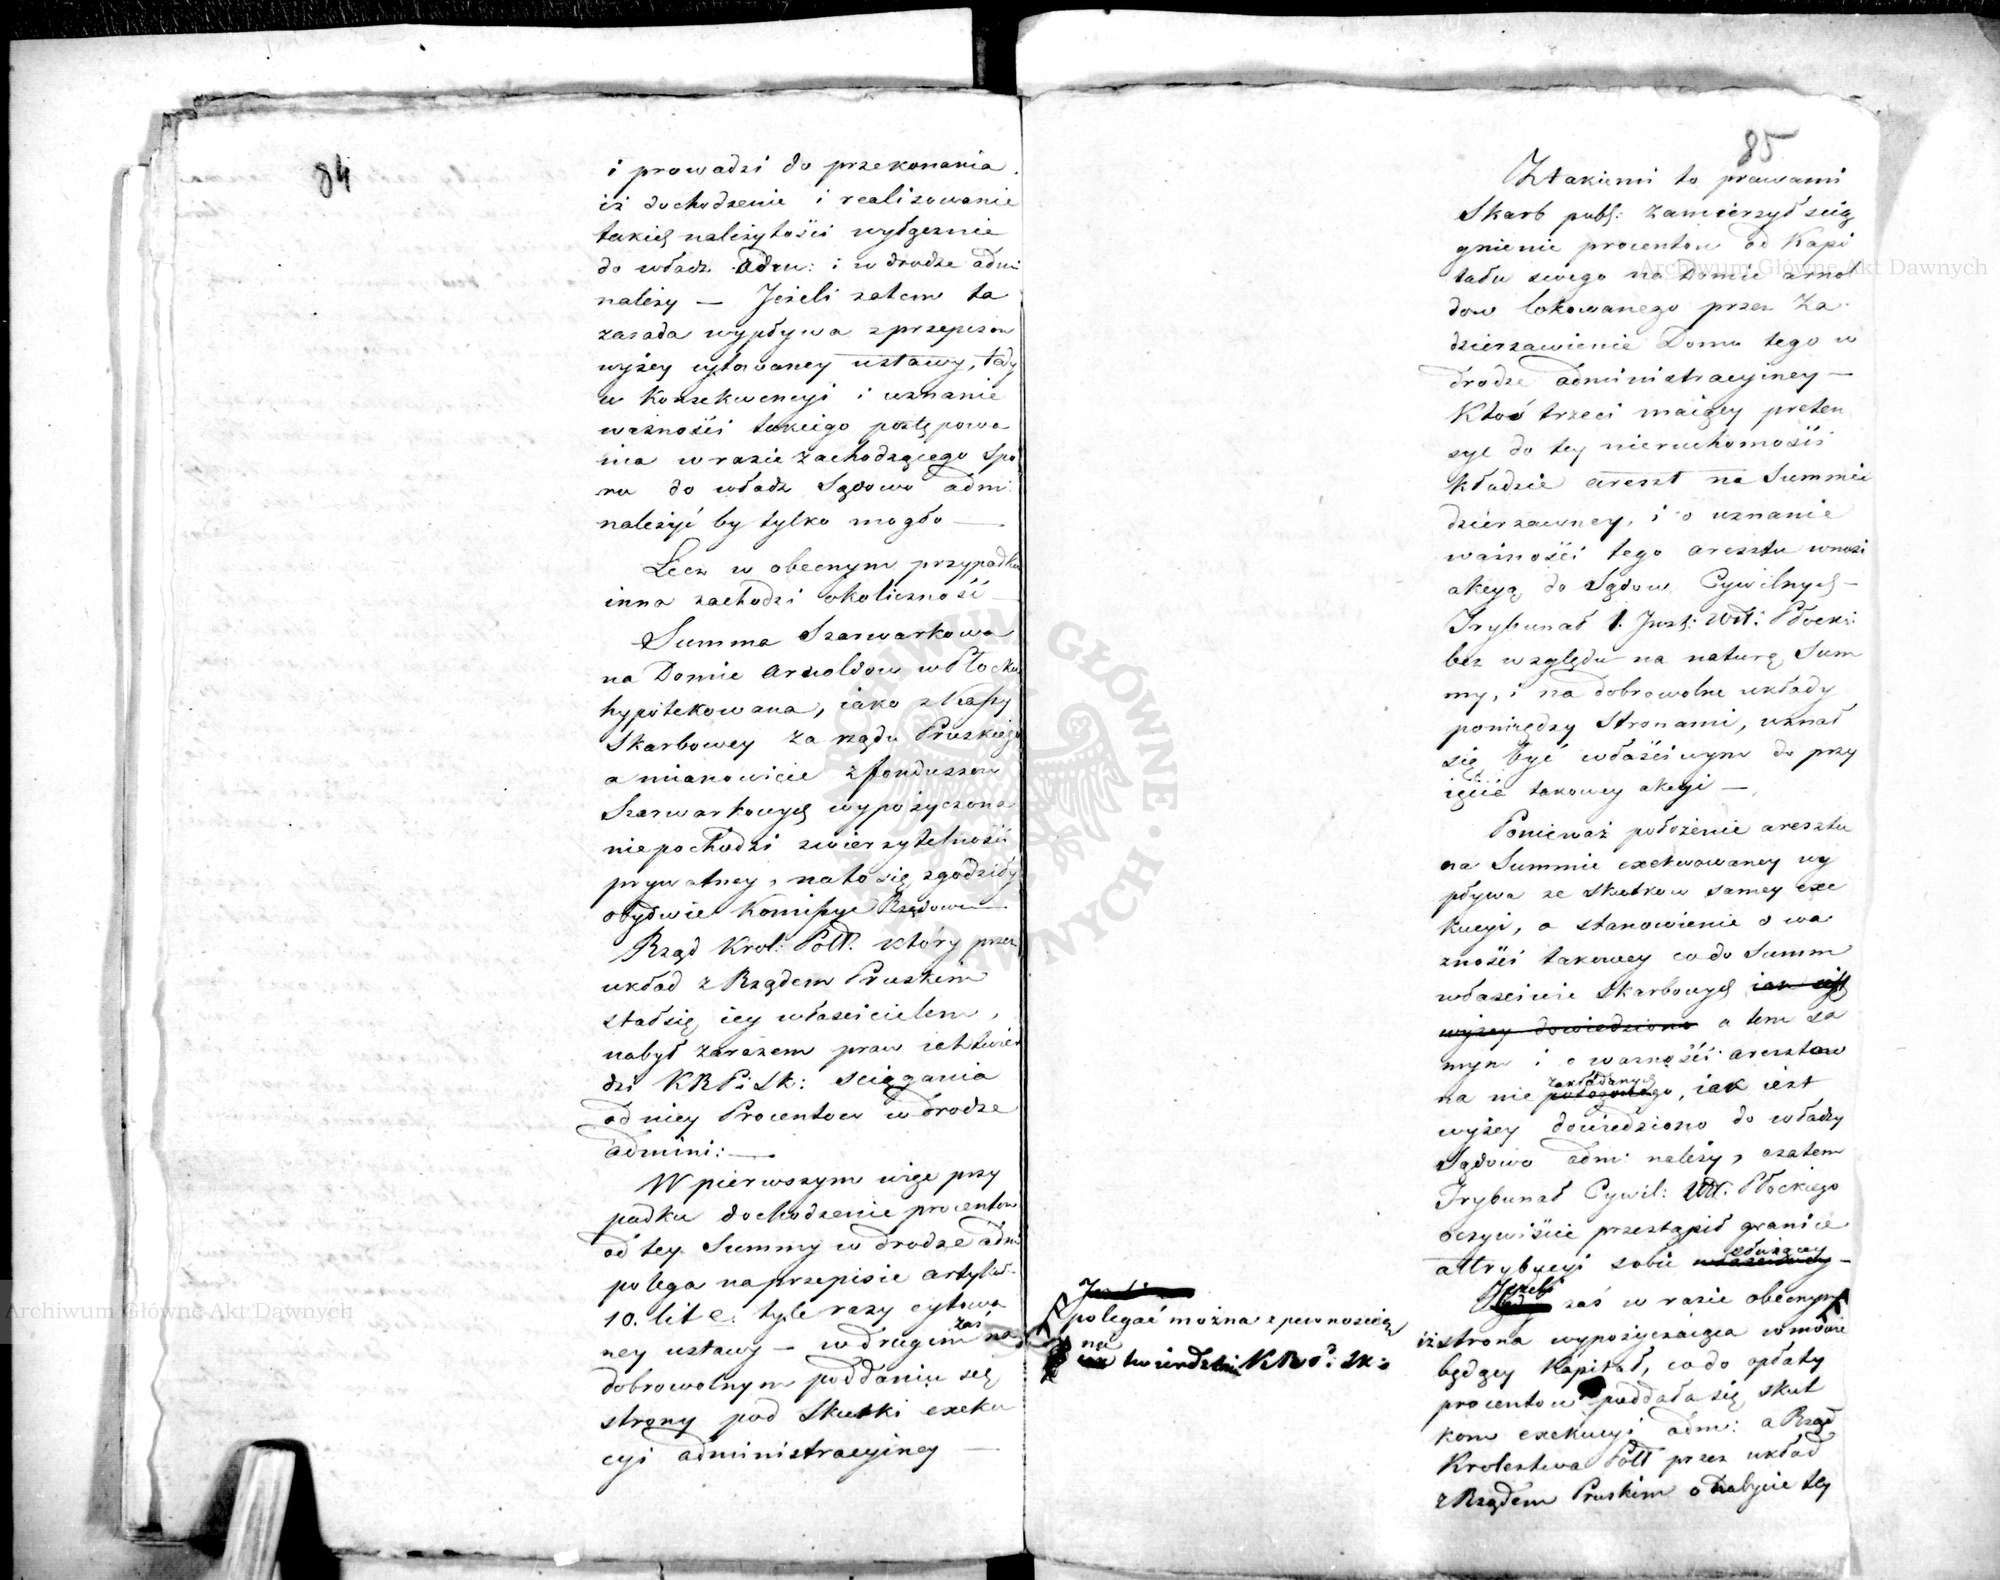 84
i prowadzi do przekonania
iż dochodzenie i realizowanie
takich należytości wyłącznie
do władz Adm: i w drodze adm:
należy — Jeżeli zatem ta
zasada wypływa z przepisow
wyżey cytowaney ustawy, tedy
w Konsekwencyi i uznanie
ważności takiego postępowa
nia w razie zachodzącego spo
ru do władz Sądowo adm:
należyć by tylko mogło —
Lecz w obecnym przypadku
inna zachodzi okoliczność —
Summa Szarwarkowa
na Domie Arnoldow w Płocku
hypotekowana, iako z Kassy
Skarbowey za rządu Pruskiego
a mianowicie z fonduszow
Szarwarkowych wypożyczona
niepochodzi z wierzytelności
prywatney, na to się zgodziły
obydwie Kommissye Rządowe —
Rząd Krol: Poll: który przez
układ z Rządem Pruskim
stał się iey właścicielem,
nabył zarazem praw iak twier
dzi KRPiSk: sciągania
od niey Procentow w drodze
admini: —
W pierwszym więc przy
padku dochodzenie procentow
od tey Summy w drodze adm:
polega na przepisie artykuł:
10. lit e. tyle razy cytowa
ney ustawy — w drugim zas na
dobrowolnym poddaniu się
strony pod Skutki exeku
cyi administracyiney —
85
Z takiemi to prawami
Skarb publ: zamierzył sciąg
gnienie procentow od Kapi
tału swego na Domie Arnol
dow lokowanego przez Za
dzierzawienie Domu tego w
drodze administracyiney —
Ktoś trzeci maiący preten
sye do tey nieruchomości
kładzie areszt na Summie
dzierzawney, i o uznanie
ważności tego aresztu wnosi
akcyą do Sądow Cywilnych —
Trybunał I. Inst: Wdt: Płocki:
bez względu na naturę Sum
my, i na dobrowolne układy
pomiędzy Stronami, uznał
się być właściwym do przy
ięcia takowey akcyi —
Ponieważ położenie aresztu
na Summie exekwowaney wy
pływa ze skutkow samey exe
kucyi, a stanowienie o wa
żności takowey co do Summ
właściwie Skarbowych iak iest
wyżey dowiedziono a tem sa
mym i o ważności aresztow
na nie położonego zakładanych, iak iest
wyżey dowiedziono do władzy
Sądowo adm: należy, azatem
Trybunał Cywil: Wdt: Płockiego
oczywiście przestąpił granice
attrybucyi sobie służącey —
Jeżeli zaś w razie obecnym
iż strona wypożyczaiąca w mowie
będący Kapitał, co do opłaty
procentow poddała się skut
kom exekucyi adm: a Rząd
Krolestwa Poll przez układ
z Rządem Pruskim o nabycie tey
polegać można z pewnością
na
twierdzeniu KRPi Sk: